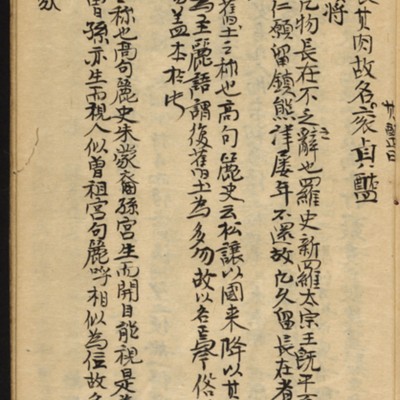 其肉故名
將
凡物長在不之辭也羅史新羅太宗王旣平百
仁願留鎮熊津屢年不還故凡久留長在者
舊土之称也高句麗史云松讓以國来降以其
為王麗語謂復舊土為多勿故以名
盖本於此
称也高句麗史朱蒙裔孫宮生而開目能視是為
曾孫亦生而視人似曾祖宮句麗呼相似為位故名